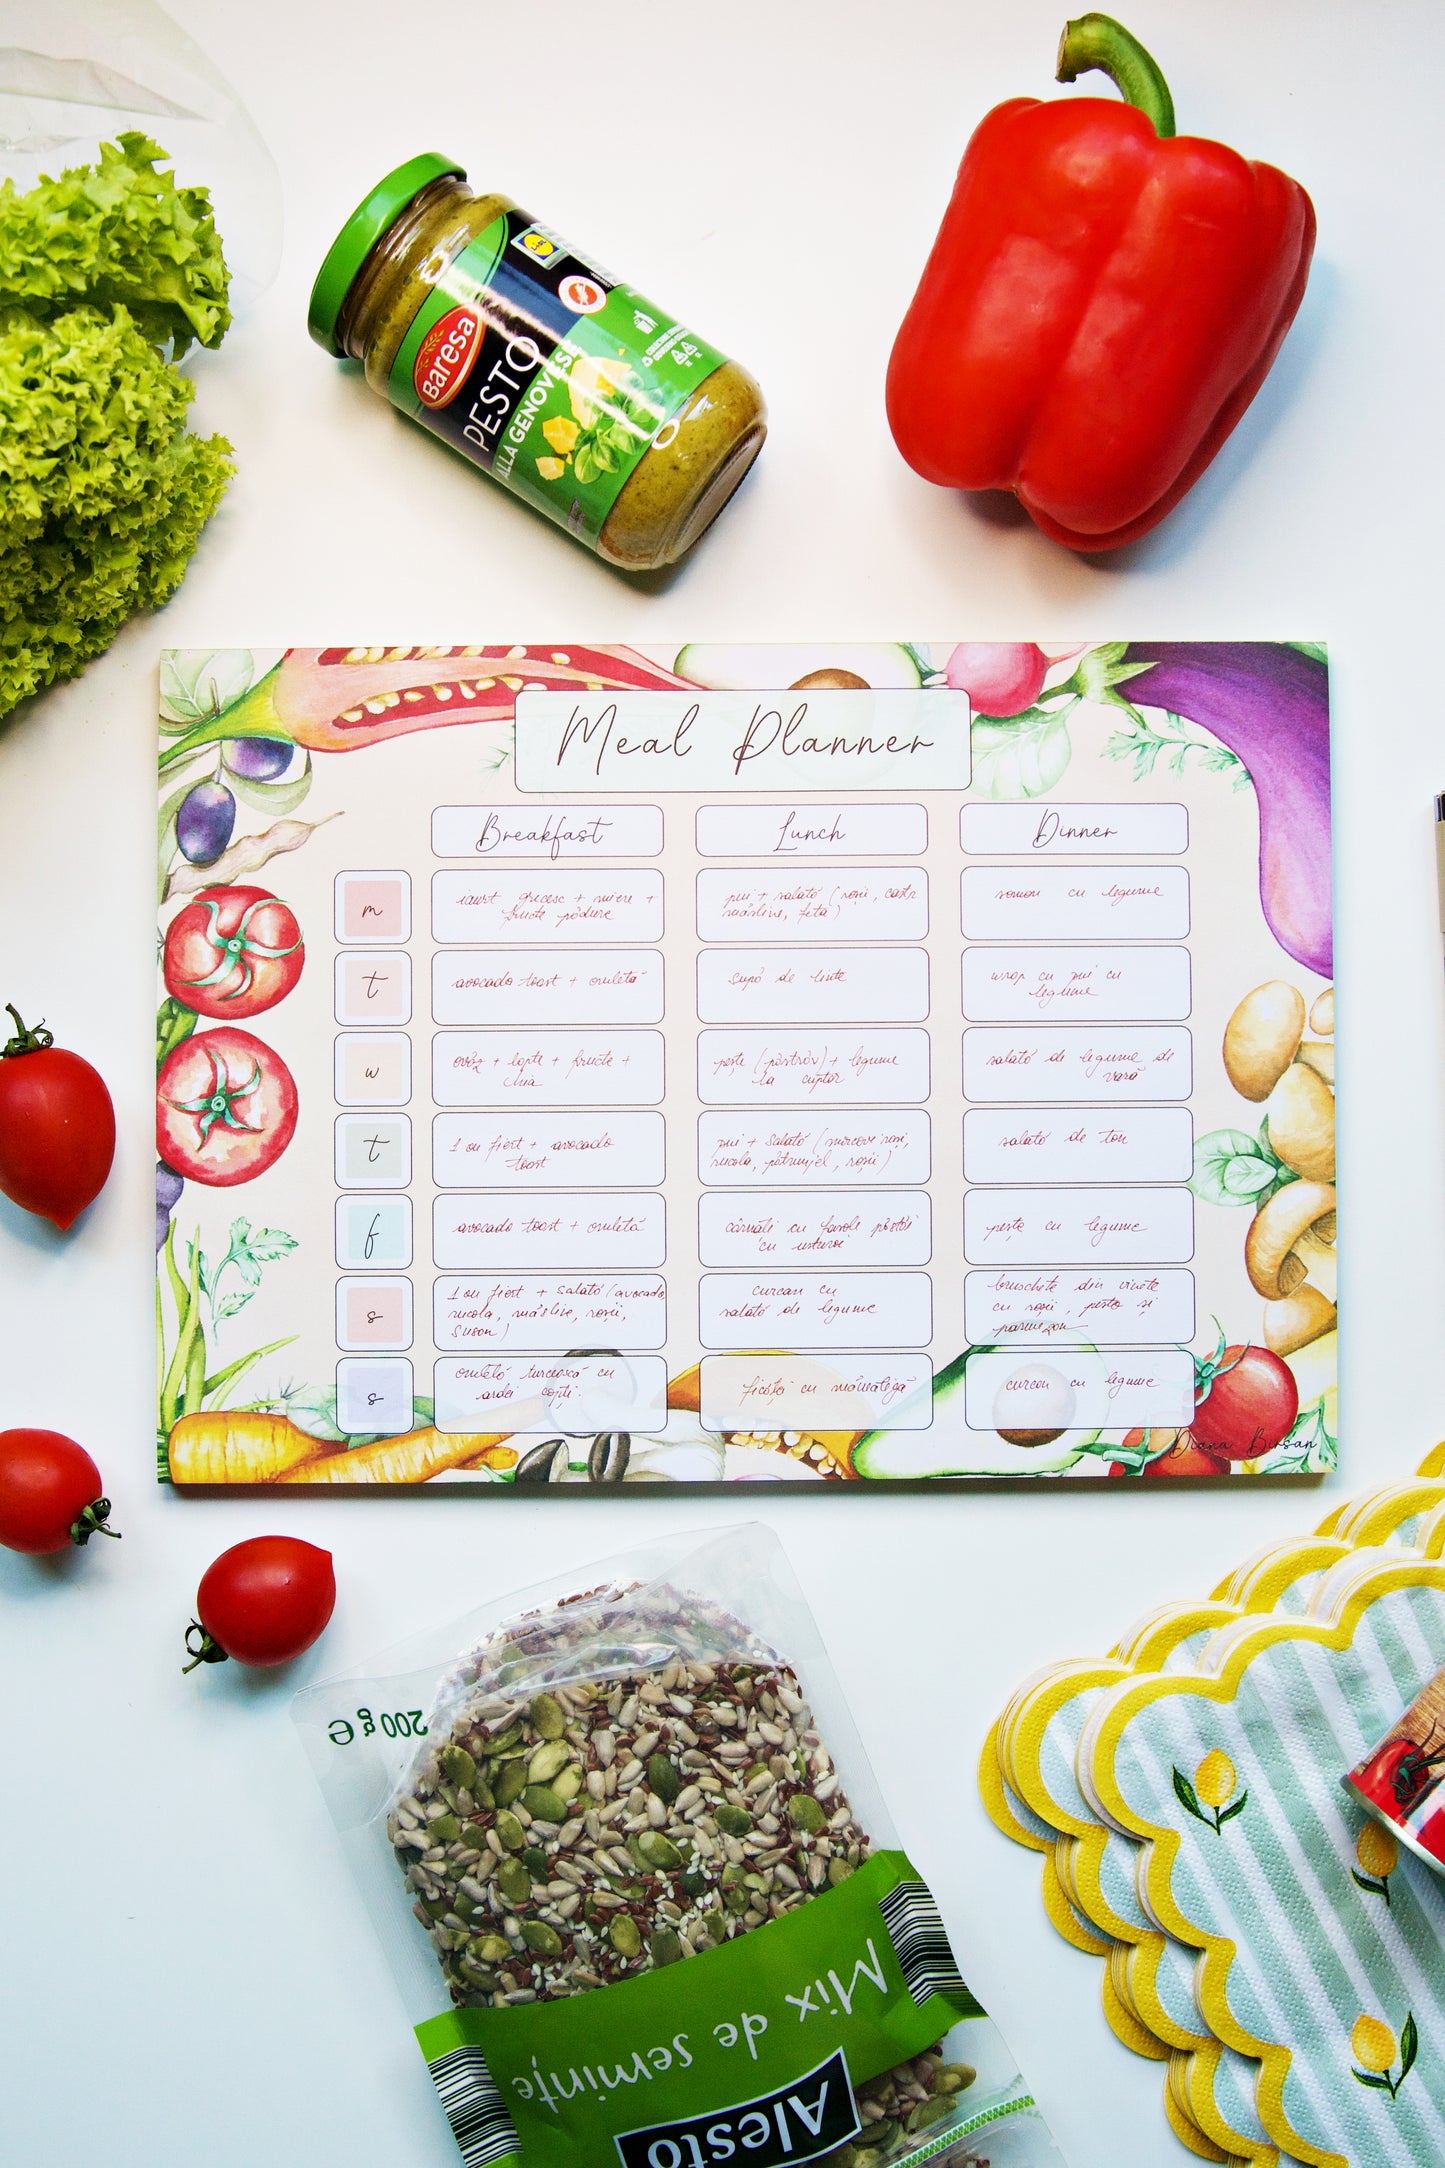 Baresa
PESTO
ALLA GENOVESE
Meal Planner
Breakfast Lunch Dinner
m
iaurt grecesc + miere +
fructe pădure
pui + salată (roșii, castr
măsline, feta)
somon cu legume
t
avocado toast + omletă
supă de linte
wrap cu pui cu
legume
w
ovăz + lapte + fructe +
chia
pește (păstrăv) + legume
la cuptor
salată de legume de
vară
t
1 ou fiert + avocado
toast
pui + salată (morcovi roși,
rucola, pătrunjel, roșii)
salată de ton
f
avocado toast + omletă
cârnați cu fasole păstăi
cu usturoi
pește cu legume
s
1 ou fiert + salată (avocado
rucola, măsline, roșii,
susan)
curcan cu
salată de legume
bruschete din vinete
cu roșii, pesto și
parmezan
s
omletă turcească cu
ardei copți
ficăței cu mămăligă
curcan cu legume
Diana Birsan
200 g e
Mix de semințe
Alesto